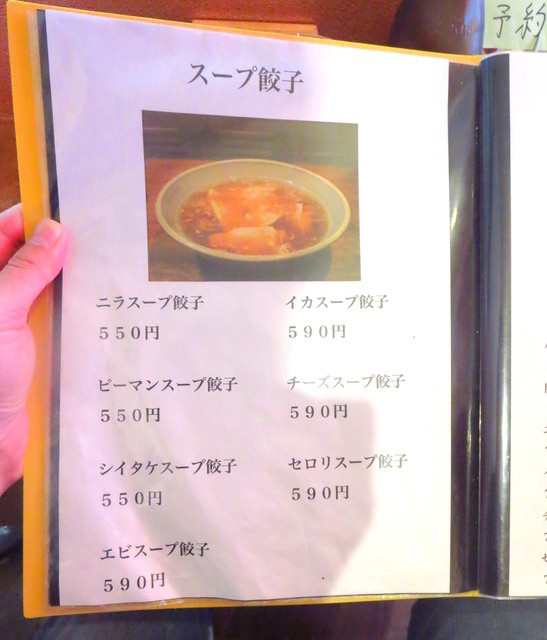 予約
スープ餃子
ニラスープ餃子
５５０円
イカスープ餃子
５９０円
ピーマンスープ餃子
５５０円
チーズスープ餃子
５９０円
シイタケスープ餃子
５５０円
セロリスープ餃子
５９０円
エビスープ餃子
５９０円